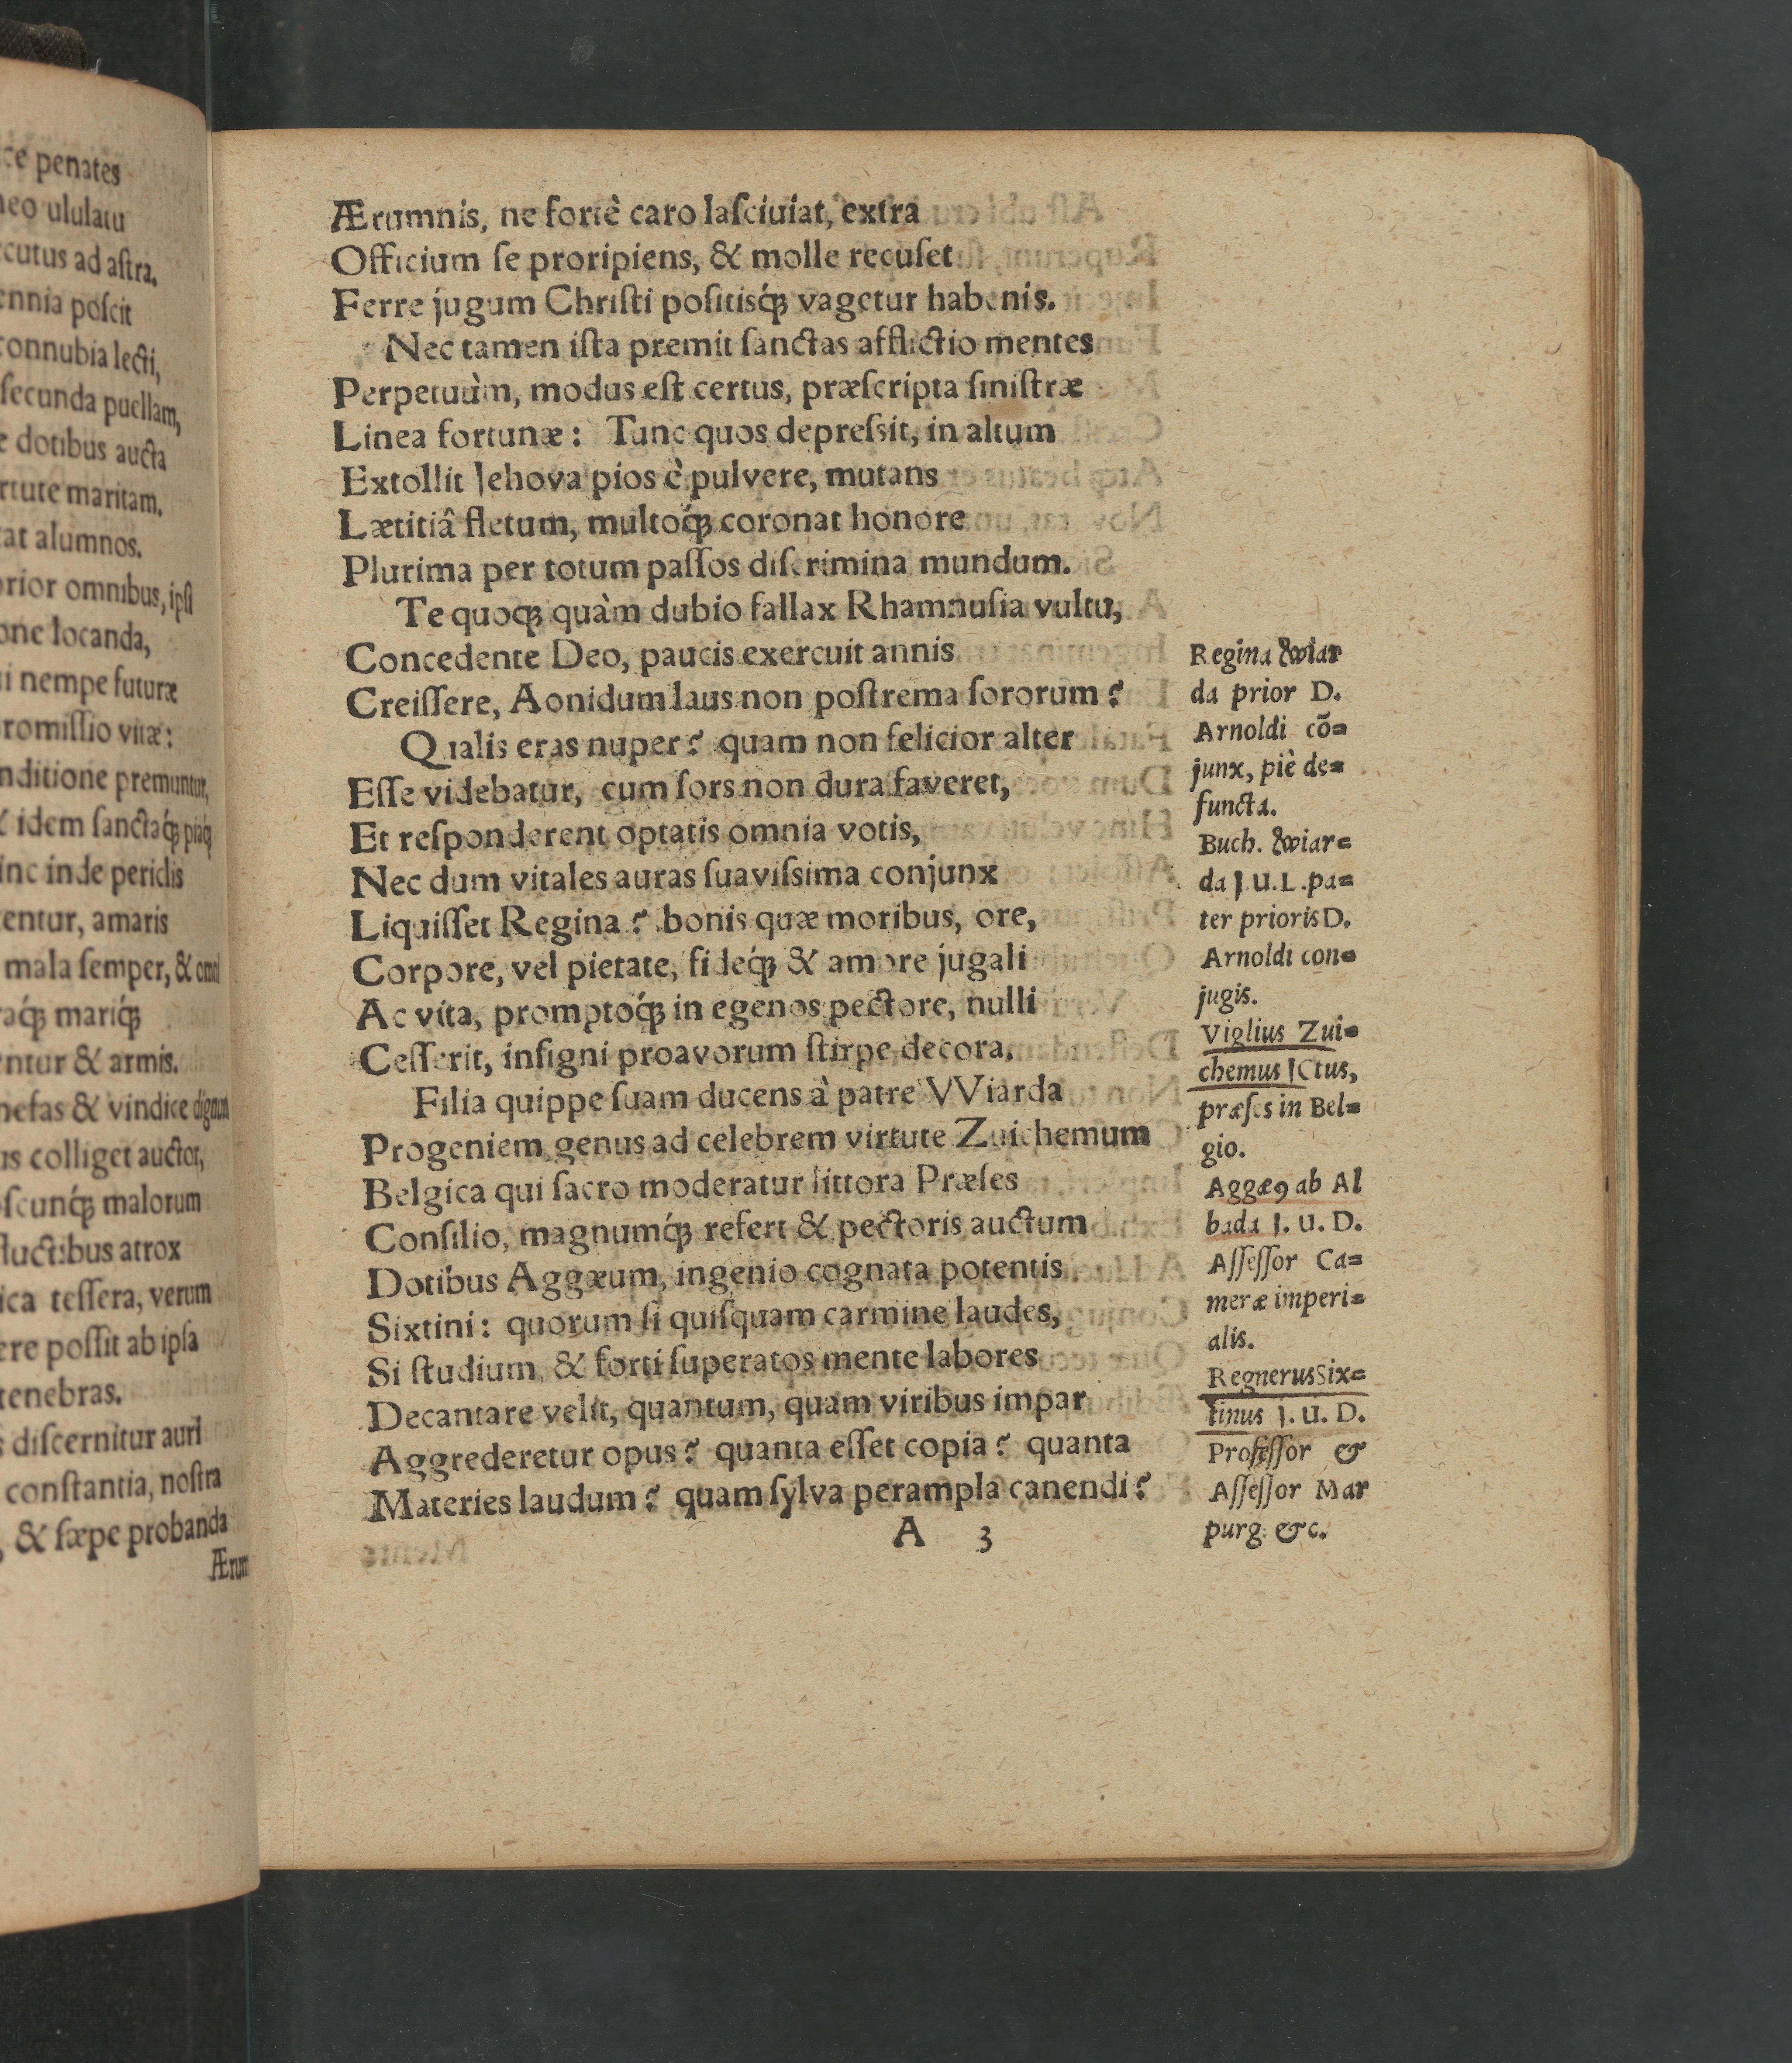 ce penates
neo ululatu
cutus ad aſtra.
ennia poſcit
connubia lecti,
ſecunda puellam,
e dotibus aucta
rtute maritam.
tat alumnos.
prior omnibus, ipſi
one locanda,
ui nempe futuræ
romiſſio vitæ:
nditione premuntur,
& idem ſanctaq́; piaq́;
inc inde periclis
entur, amaris
mala ſemper, &
aq́; mariq́;
entur & armis.
nefas & vindice dignum
us colliget auctor,
oſcunq́; malorum
fluctibus atrox
ica teſſera, verum
ere poſſit ab ipſa
tenebras.
s diſcernitur auri
conſtantia, noſtra
, & ſæpe probanda
Ærum
Ærumnis, ne fortè caro laſciuiat, extra
Officium ſe proripiens, & molle recuſet
Ferre jugum Chriſti poſitisq́; vagetur habenis.
Nec tamen iſta premit ſanctas afflictio mentes
Perpetuùm, modus eſt certus, præſcripta ſiniſtræ
Linea fortunæ: Tunc quos depreſsit, in altum
Extollit Jehova pios è pulvere, mutans
Lætitiâ fletum, multoq́; coronat honore
Plurima per totum paſſos diſcrimina mundum.
Te quoq; quàm dubio fallax Rhamnuſia vultu,
Concedente Deo, paucis exercuit annis
Creiſſere, Aonidum laus non poſtrema ſororum?
Qualis eras nuper? quam non felicior alter
Eſſe videbatur, cum ſors non dura faveret,
Et reſponderent optatis omnia votis,
Nec dum vitales auras ſuaviſsima conjunx
Liquiſſet Regina? bonis quæ moribus, ore,
Corpore, vel pietate, fideq́; & amore jugali
Ac vita, promptoq́; in egenos pectore, nulli
Ceſſerit, inſigni proavorum ſtirpe decora.
Filia quippe ſuam ducens à patre VViarda
Progeniem, genus ad celebrem virtute Zuichemum
Belgica qui ſacro moderatur littora Præſes
Conſilio, magnumq́; refert & pectoris auctum
Dotibus Aggæum, ingenio cognata potentis
Sixtini: quorum ſi quiſquam carmine laudes,
Si ſtudium, & forti ſuperatos mente labores
Decantare velit, quantum, quam viribus impar
Aggrederetur opus? quanta eſſet copia? quanta
Materies laudum? quam ſylva perampla canendi?
A 3
Regina Wiar
da prior D.
Arnoldi cõ=
junx, piè de=
functa.
Buch. Wiar=
da J.U.L. pa=
ter prioris D.
Arnoldi con=
jugis.
Viglius Zui=
chemus JCtus,
præſes in Bel=
gio.
Aggæꝰ ab Al
bada J. U. D.
Aſſeſſor Ca=
meræ imperi=
alis.
Regnerus Six=
tinus J. U. D.
Profeſſor &
Aſſeſſor Mar
purg. &c.